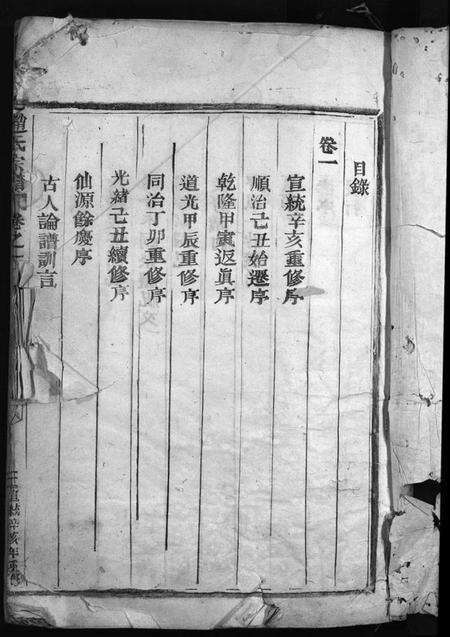 目錄
卷一
宣統辛亥重修序
順治己丑始遷序
乾隆甲寅返眞序
道光甲辰重修序
同治丁卯重修序
光緒己丑續修序
仙源餘慶序
古人論譜訓言
趙氏宗譜 卷之一
宣統辛亥年重修